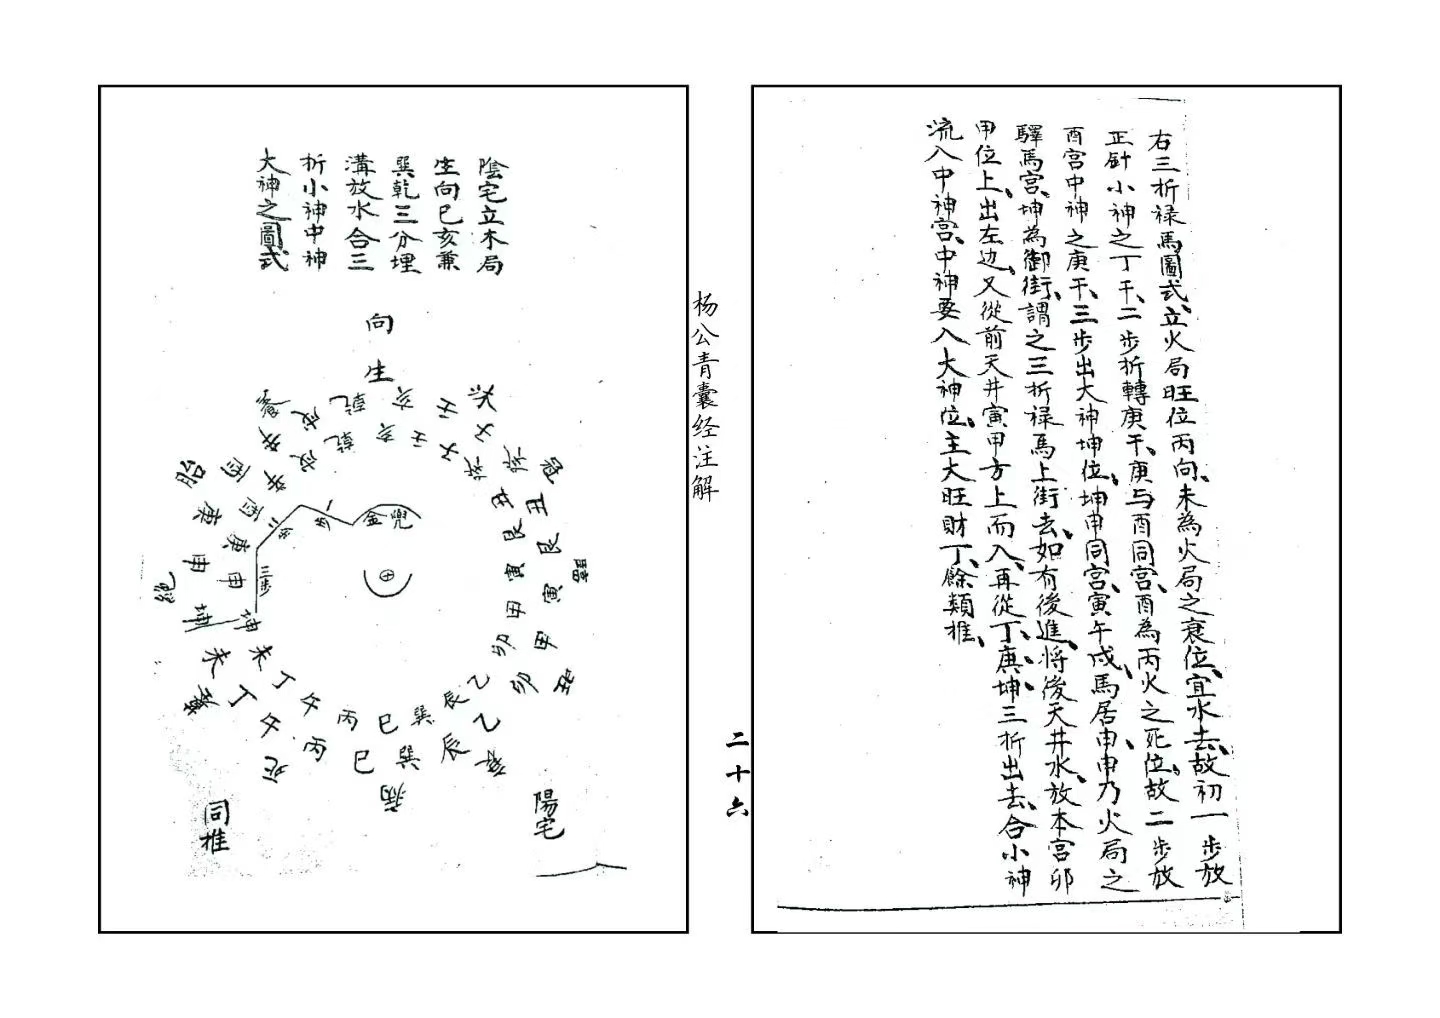 右三折禄馬圖式、立火局旺位丙向、未為火局之衰位、宜水去、故初一步放
正針小神之丁干、二步折轉庚干、庚与酉同宫、酉為丙火之死位、故二步放
酉宫中神之庚干、三步出大神坤位、坤申同宫、寅午戌馬居申、申乃火局之
驛馬宫、坤為御街、謂之三折禄馬上街去、如有後進、将後天井水、放本宫卯
甲位上、出左边、又從前天井寅甲方上而入、再從丁、庚、坤三折出去、合小神
流入中神宫、中神要入大神位、主大旺財丁、餘類推、
杨公青囊经注解
二十六
陰宅立木局
生向巳亥兼
巽乾三分埋
溝放水合三
折小神中神
大神之圖式
向
生
沐
冠
臨
旺
衰
病
死
墓
絕
胎
養
亥 壬 子 癸 丑 艮 寅 甲 卯 乙 辰 巽 巳 丙 午 丁 未 坤 申 庚 酉 辛 戌 乾
亥 壬 子 癸 丑 艮 寅 甲 卯 乙 辰 巽 巳 丙 午 丁 未 坤 申 庚 酉 辛 戌 乾
金 兜
一步
二步
三步
陽宅
同推